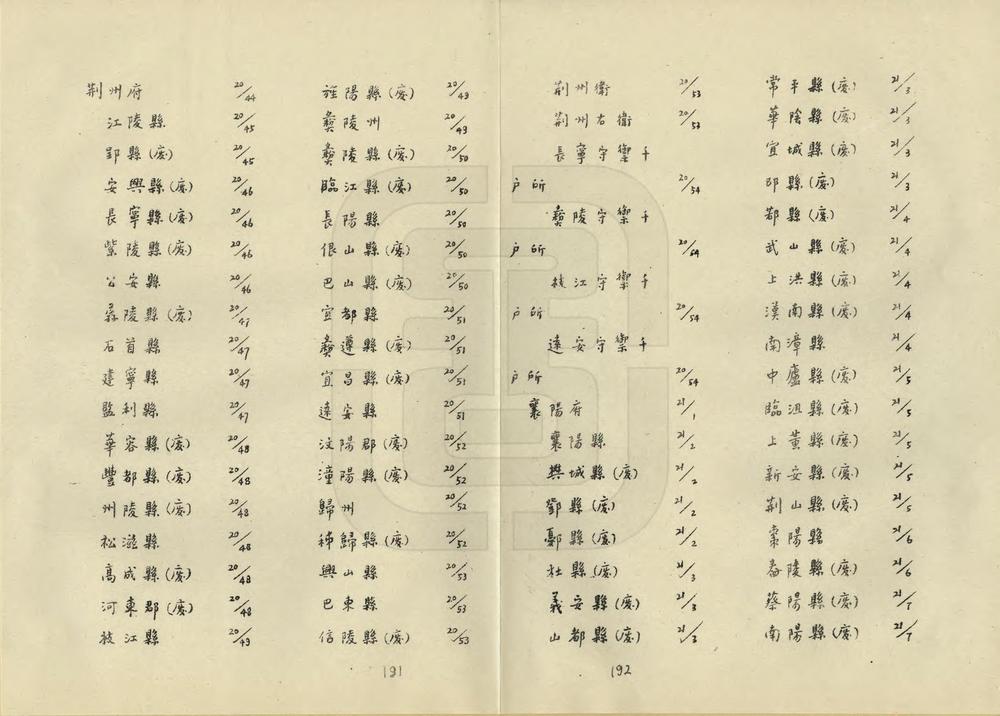 荆州府 20/44
江陵縣 20/45
郢縣(廢) 20/45
安興縣(廢) 20/46
長寧縣(廢) 20/46
紫陵縣(廢) 20/46
公安縣 20/46
孱陵縣(廢) 20/47
石首縣 20/47
建寧縣 20/47
監利縣 20/47
華容縣(廢) 20/48
豐都縣(廢) 20/48
州陵縣(廢) 20/48
松滋縣 20/48
高成縣(廢) 20/48
河東郡(廢) 20/48
枝江縣 20/49
旌陽縣(廢) 20/49
彝陵州 20/49
彝陵縣(廢) 20/50
臨江縣(廢) 20/50
長陽縣 20/50
佷山縣(廢) 20/50
巴山縣(廢) 20/50
宜都縣 20/51
彝道縣(廢) 20/51
宜昌縣(廢) 20/51
遠安縣 20/51
汶陽郡(廢) 20/52
潼陽縣(廢) 20/52
歸州 20/52
秭歸縣(廢) 20/52
興山縣 20/53
巴東縣 20/53
信陵縣(廢) 20/53
191
荆州衞 20/53
荆州右衞 20/53
長寧守禦千
戶所 20/54
彝陵守禦千
戶所 20/54
枝江守禦千
戶所 20/54
遠安守禦千
戶所 20/54
襄陽府 21/1
襄陽縣 21/2
樊城縣(廢) 21/2
鄧縣(廢) 21/2
鄾縣(廢) 21/2
杜縣(廢) 21/3
義安縣(廢) 21/3
山都縣(廢) 21/3
常平縣(廢) 21/3
華陰縣(廢) 21/3
宜城縣(廢) 21/3
邔縣(廢) 21/3
鄀縣(廢) 21/4
武山縣(廢) 21/4
上洪縣(廢) 21/4
漢南縣(廢) 21/4
南漳縣 21/4
中廬縣(廢) 21/5
臨沮縣(廢) 21/5
上黄縣(廢) 21/5
新安縣(廢) 21/5
荆山縣(廢) 21/5
棗陽縣 21/6
舂陵縣(廢) 21/6
蔡陽縣(廢) 21/7
南陽縣(廢) 21/7
192